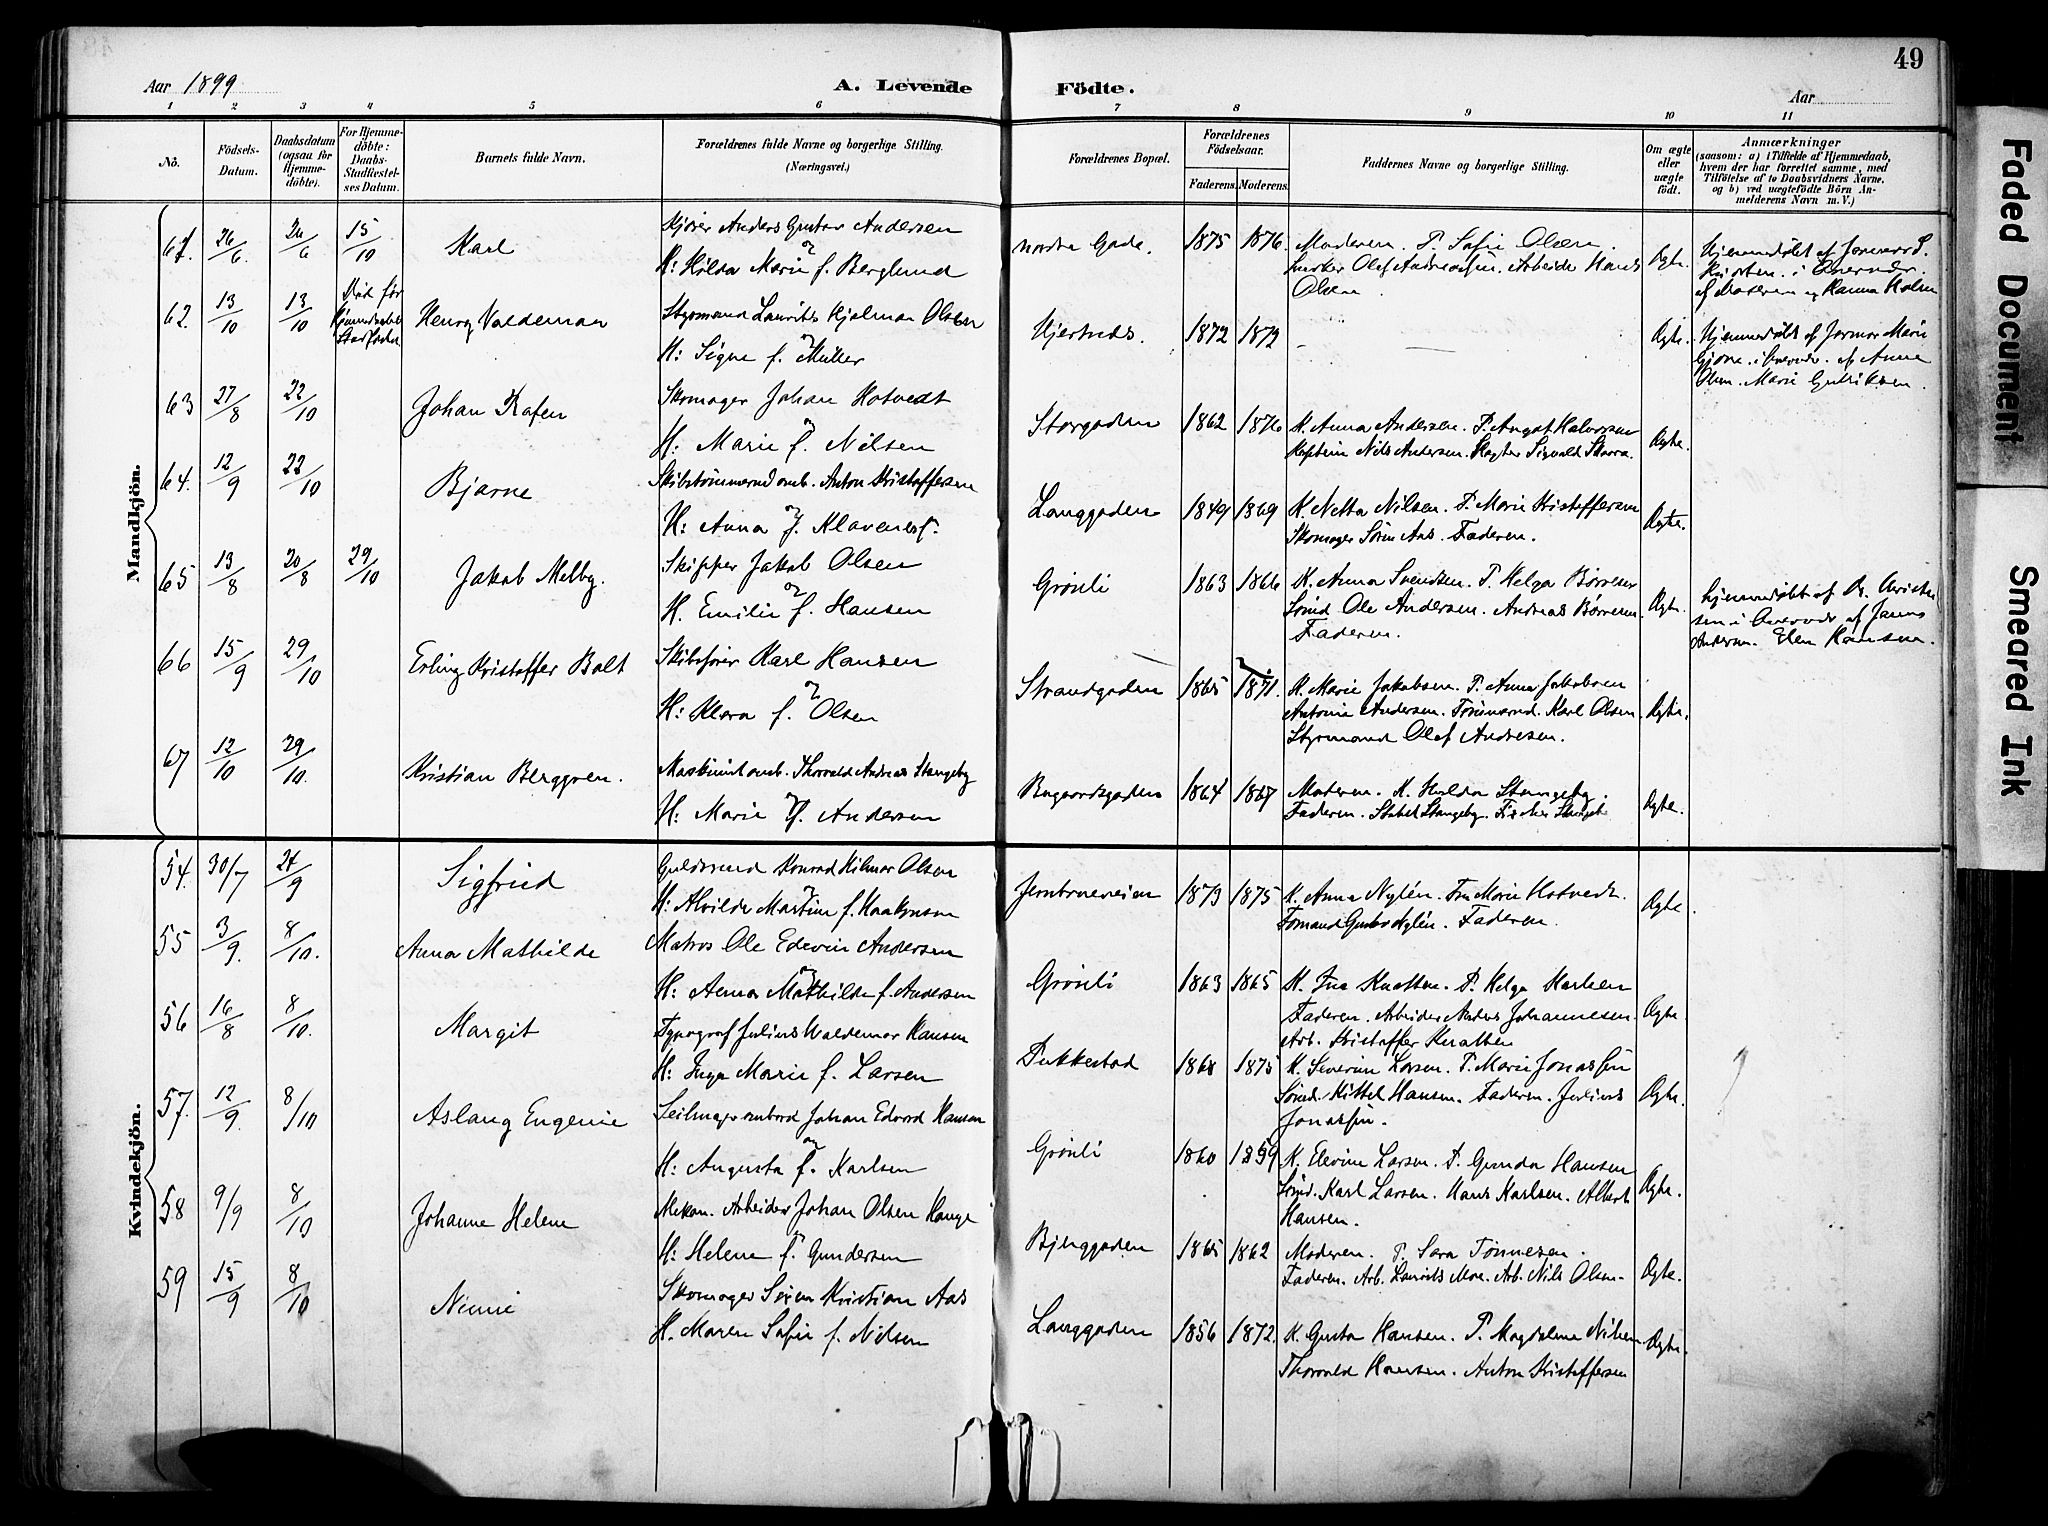 49
Aar 1899
A. Levende Födte.
Aar
1 2 3 4 5 6 7 8 9 10 11
Nо. Födsels-Datum. Daabsdatum (ogsaa for Hjemme-döbte). For Hjemme-döbte: Daabs-Stadfæstel-ses Datum. Barnets fulde Navn. Forældrenes fulde Navne og borgerlige Stilling. (Næringsvei.) Forældrenes Bopæl. Forældrenes Födselsaar. Faderens. Moderens. Faddernes Navne og borgerlige Stilling. Om ægte eller uægte födt. Anmærkninger (saasom: a) i Tilfælde af Hjemmedaab, hvem der har forrettet samme, med Tilföielse af to Daabsvidners Navne, og b) ved uægtefödte Börn An-melderens Navn m. V.)
Mandkjön.
61. 26/6 26/6 15/10 Karl
Anders Gustav Andersen
og
H: Hilda Marie f. Berglund
nordre Gade. 1875 1876.
Moderen. P. Sofie Olsen.
Olaf Andreassen. Arbeider Hans
Olsen
Ægte. Hjemmedøbt af
62. 13/10 13/10 Død før
Henry Valdemar
Styrmand Laurits Hjalmar Olsen
og
H: Signe f. Müller
1872 1872
Ægte. Hjemmedøbt af Jormor Marie
af Anna
Olsen. Marie
63 27/8 22/10 Johan
Skomager Johan Hotvedt
og
H: Marie f. Nilsen
Storgaden 1862 1876
K. Anna Andersen. P. August Halvorsen
Kaptein Nils Andersen. Sigvald
Ægte.
64. 12/9 22/10 Bjarne
Skibstømmermd omb. Anton Kristoffersen
og
H: Anna f.
Langgaden 1849 1869
K. Netta Nilsen. P. Marie Kristoffersen
Skomager Sören Aas. Faderen.
Ægte.
65 13/8 20/8 29/10 Jakob Melby.
Skipper Jakob Olsen
og
H. Emilie f. Hansen
Grönli 1863 1866
K. Anna Svendsen. P. Helga Börresen
Sömd. Ole Andersen. Andreas Börresen
Faderen.
Ægte. hjemmedøbt af Dr. Christen
sen i
Andersen. Elen Hansen.
66 15/9 29/10 Erling Kristoffer Bolt
Skibsfører Karl Hansen
og
H: Klara f. Olsen
Strandgaden 1865 1871.
K. Marie Jakobsen. P. Anna Jakobsen
Antonie Andersen. Tömmermd. Karl Olsen.
Styrmand Olaf Andresen.
Ægte.
67 12/10 29/10. Kristian Berggren.
Maskinist omb. Thorvald Andreas Stangeby
og
H: Marie f. Andersen
1864 1867
Moderen. K. Hulda Stangeby.
Faderen.
Ægte.
Kvindekjön.
54. 30/7 24/9 Sigfried
Guldsmed Konrad Hilmar Olsen
og
H: Alvilde Martine f. Haakonsen
Jernbaneveien 1873 1875
K. Anna Nylén. Fru Marie Hotvedt.
Gustav Nylén. Faderen.
Ægte
55 3/9. 8/10. Anna Mathilde
Matros Ole Edevin Andersen
og
H: Anna Mathilde f. Andersen
Grönli 1863 1865
K. Ina Knatten. P. Helga Karlsen
Faderen. Arbeider Anders Johannesen.
Arb. Kristoffer Knatten
Ægte.
56 16/8 8/10. Margit
Typograf Julius Waldemar Hansen
H: Inga Marie f. Larsen
Dukkestad 1868 1875
K. Severine Larsen. P. Marie Jonassen
Sömd. Kittel Hansen. Faderen. Julius
Jonassen.
Ægte.
57. 12/9. 8/10 Aslaug Eugenie
Seilmager ombord Johan Edvard Hansen
og
H: Augusta f. Karlsen
Grönli 1860 1859
K. Elevine Larsen. P. Gunda Hansen
Sömd. Karl Larsen. Hans Karlsen. Albert
Hansen.
Ægte.
58 9/9 8/10 Johanne Helene
Mekan. Arbeider Johan Olsen Hauge
H: Helene f. Gundersen
Bjerggaden 1865 1862
Moderen. P. Sara Tönnesen.
Faderen. Arb. Laurits Moe. Arb. Nils Olsen.
Ægte.
59 15/9 8/10
Skomager Sören Kristian Aas
H. Maren Sofie f. Nilsen
Langgaden 1856 1872.
K. Gusta Hansen. P. Magdalene Nilsen
Thorvald Hansen. Anton Kristoffersen
Ægte.
Faded Document
Smeared Ink